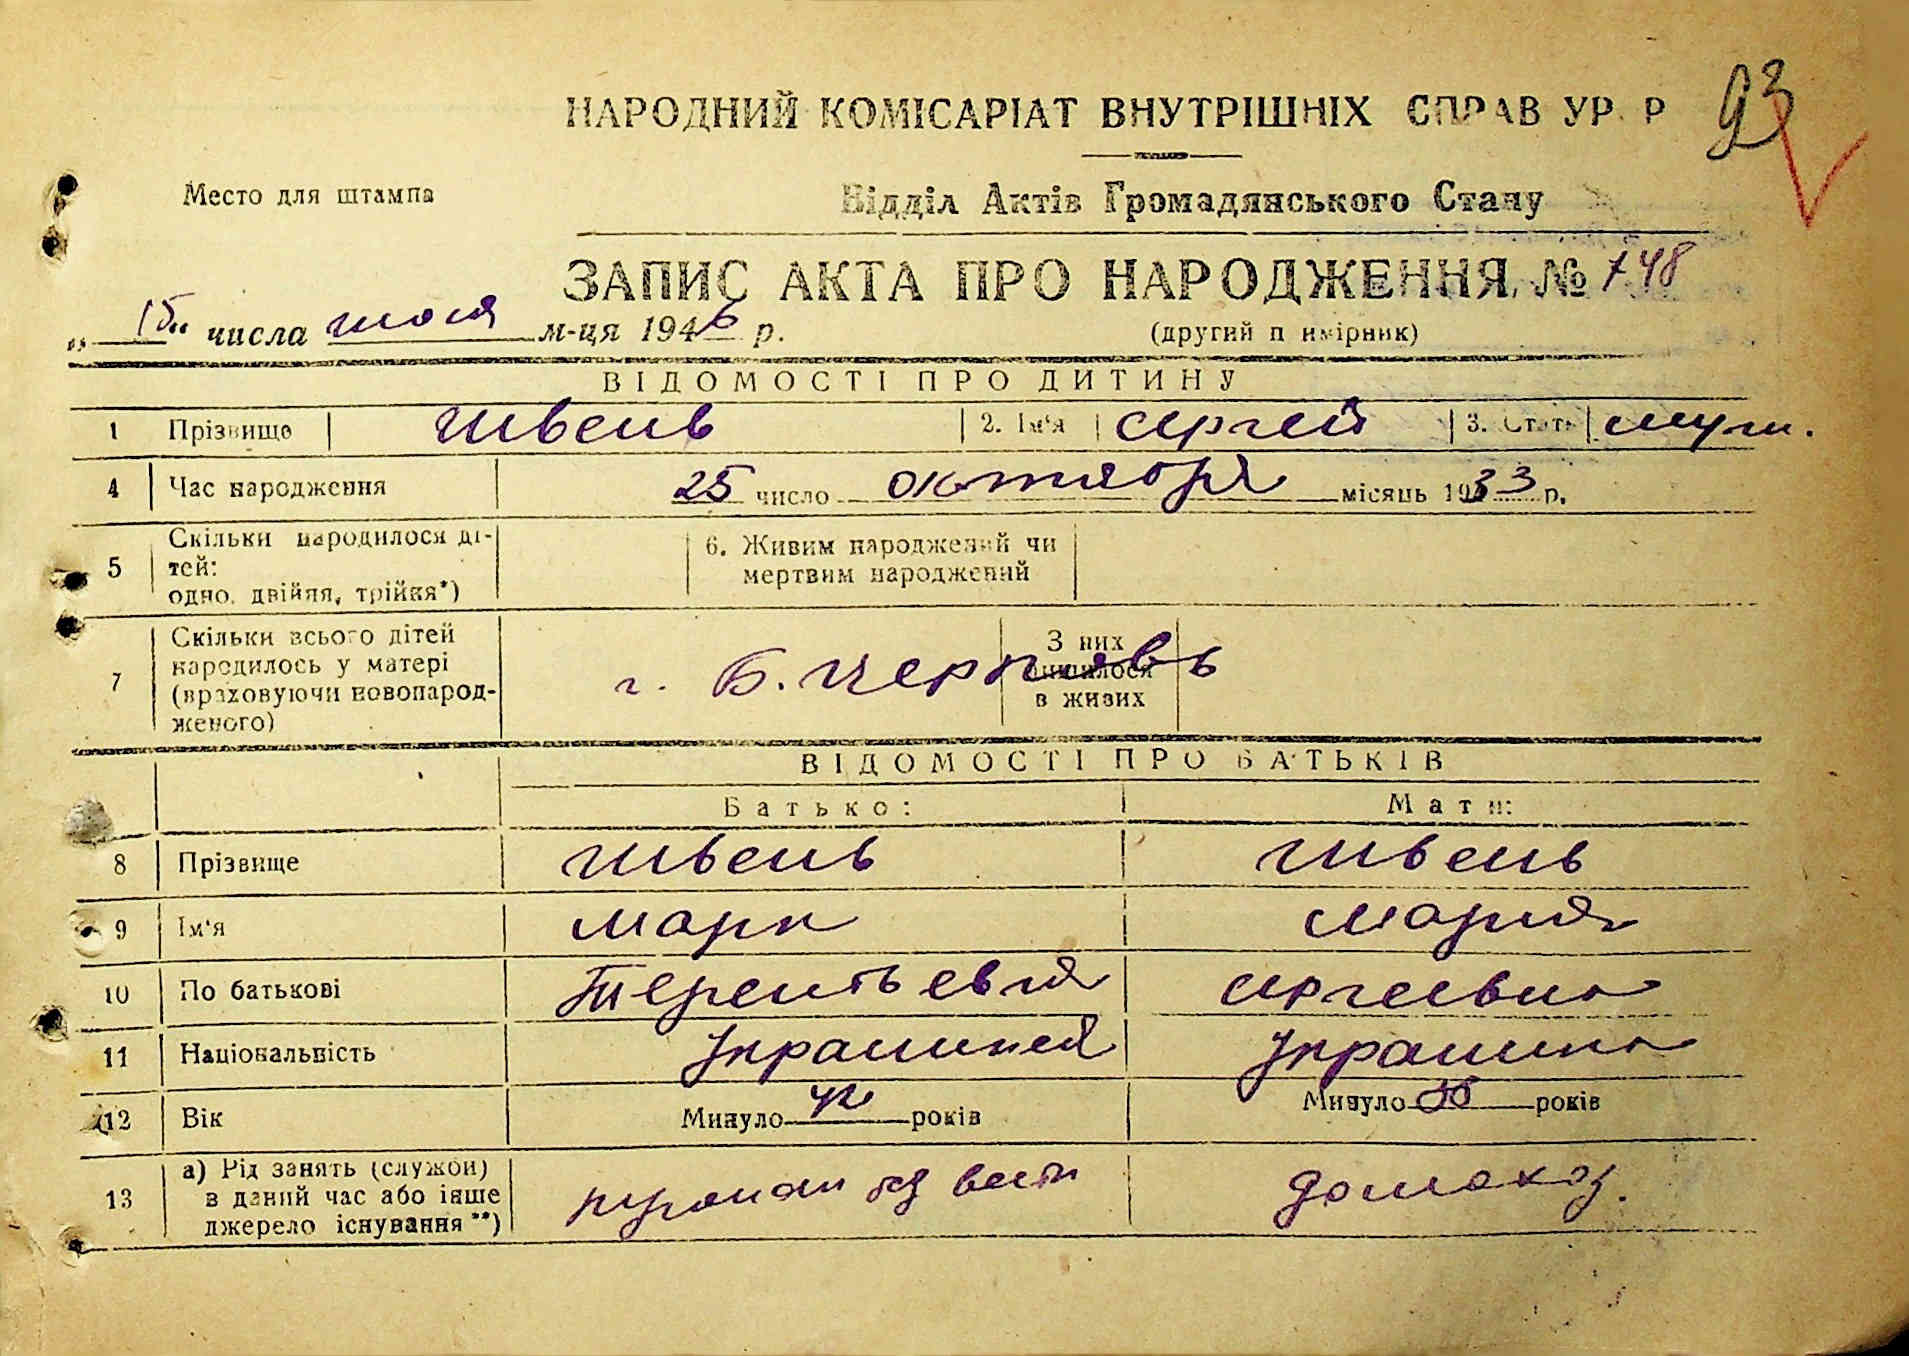 93
НАРОДНИЙ КОМІСАРІАТ ВНУТРІШНІХ СПРАВ УР Р
Место для штампа
Відділ Актів Громадянського Стану
ЗАПИС АКТА ПРО НАРОДЖЕННЯ, № 748
„ 15 “ числа июля м-ця 1946 р.
(другий п имірник)
ВІДОМОСТІ ПРО ДИТИНУ
1 Прізвище Швень 2. Ім‘я Сергей 3. Стать муж.
4 Час народження 25 число октября місяць 1933 р.
5 Скільки народилося ді-
тей:
одно, двійня, трійня*)
6. Живим народжений чи
мертвим народжений
7 Скільки всього дітей
народилось у матері
(враховуючи новонарод-
женого)
г. Б. Церковь
З них
лишилося
в живих
ВІДОМОСТІ ПРО БАТЬКІВ
Батько: Мати:
8 Прізвище Швень Швень
9 Ім‘я Марк Мария
10 По батькові Терентьевич Сергеевна
11 Національність Украинец Украинка
12 Вік Минуло 42 років Минуло років
13 а) Рід занять (служби)
в даний час або інше
джерело існування **)
пропал без вести домохоз.